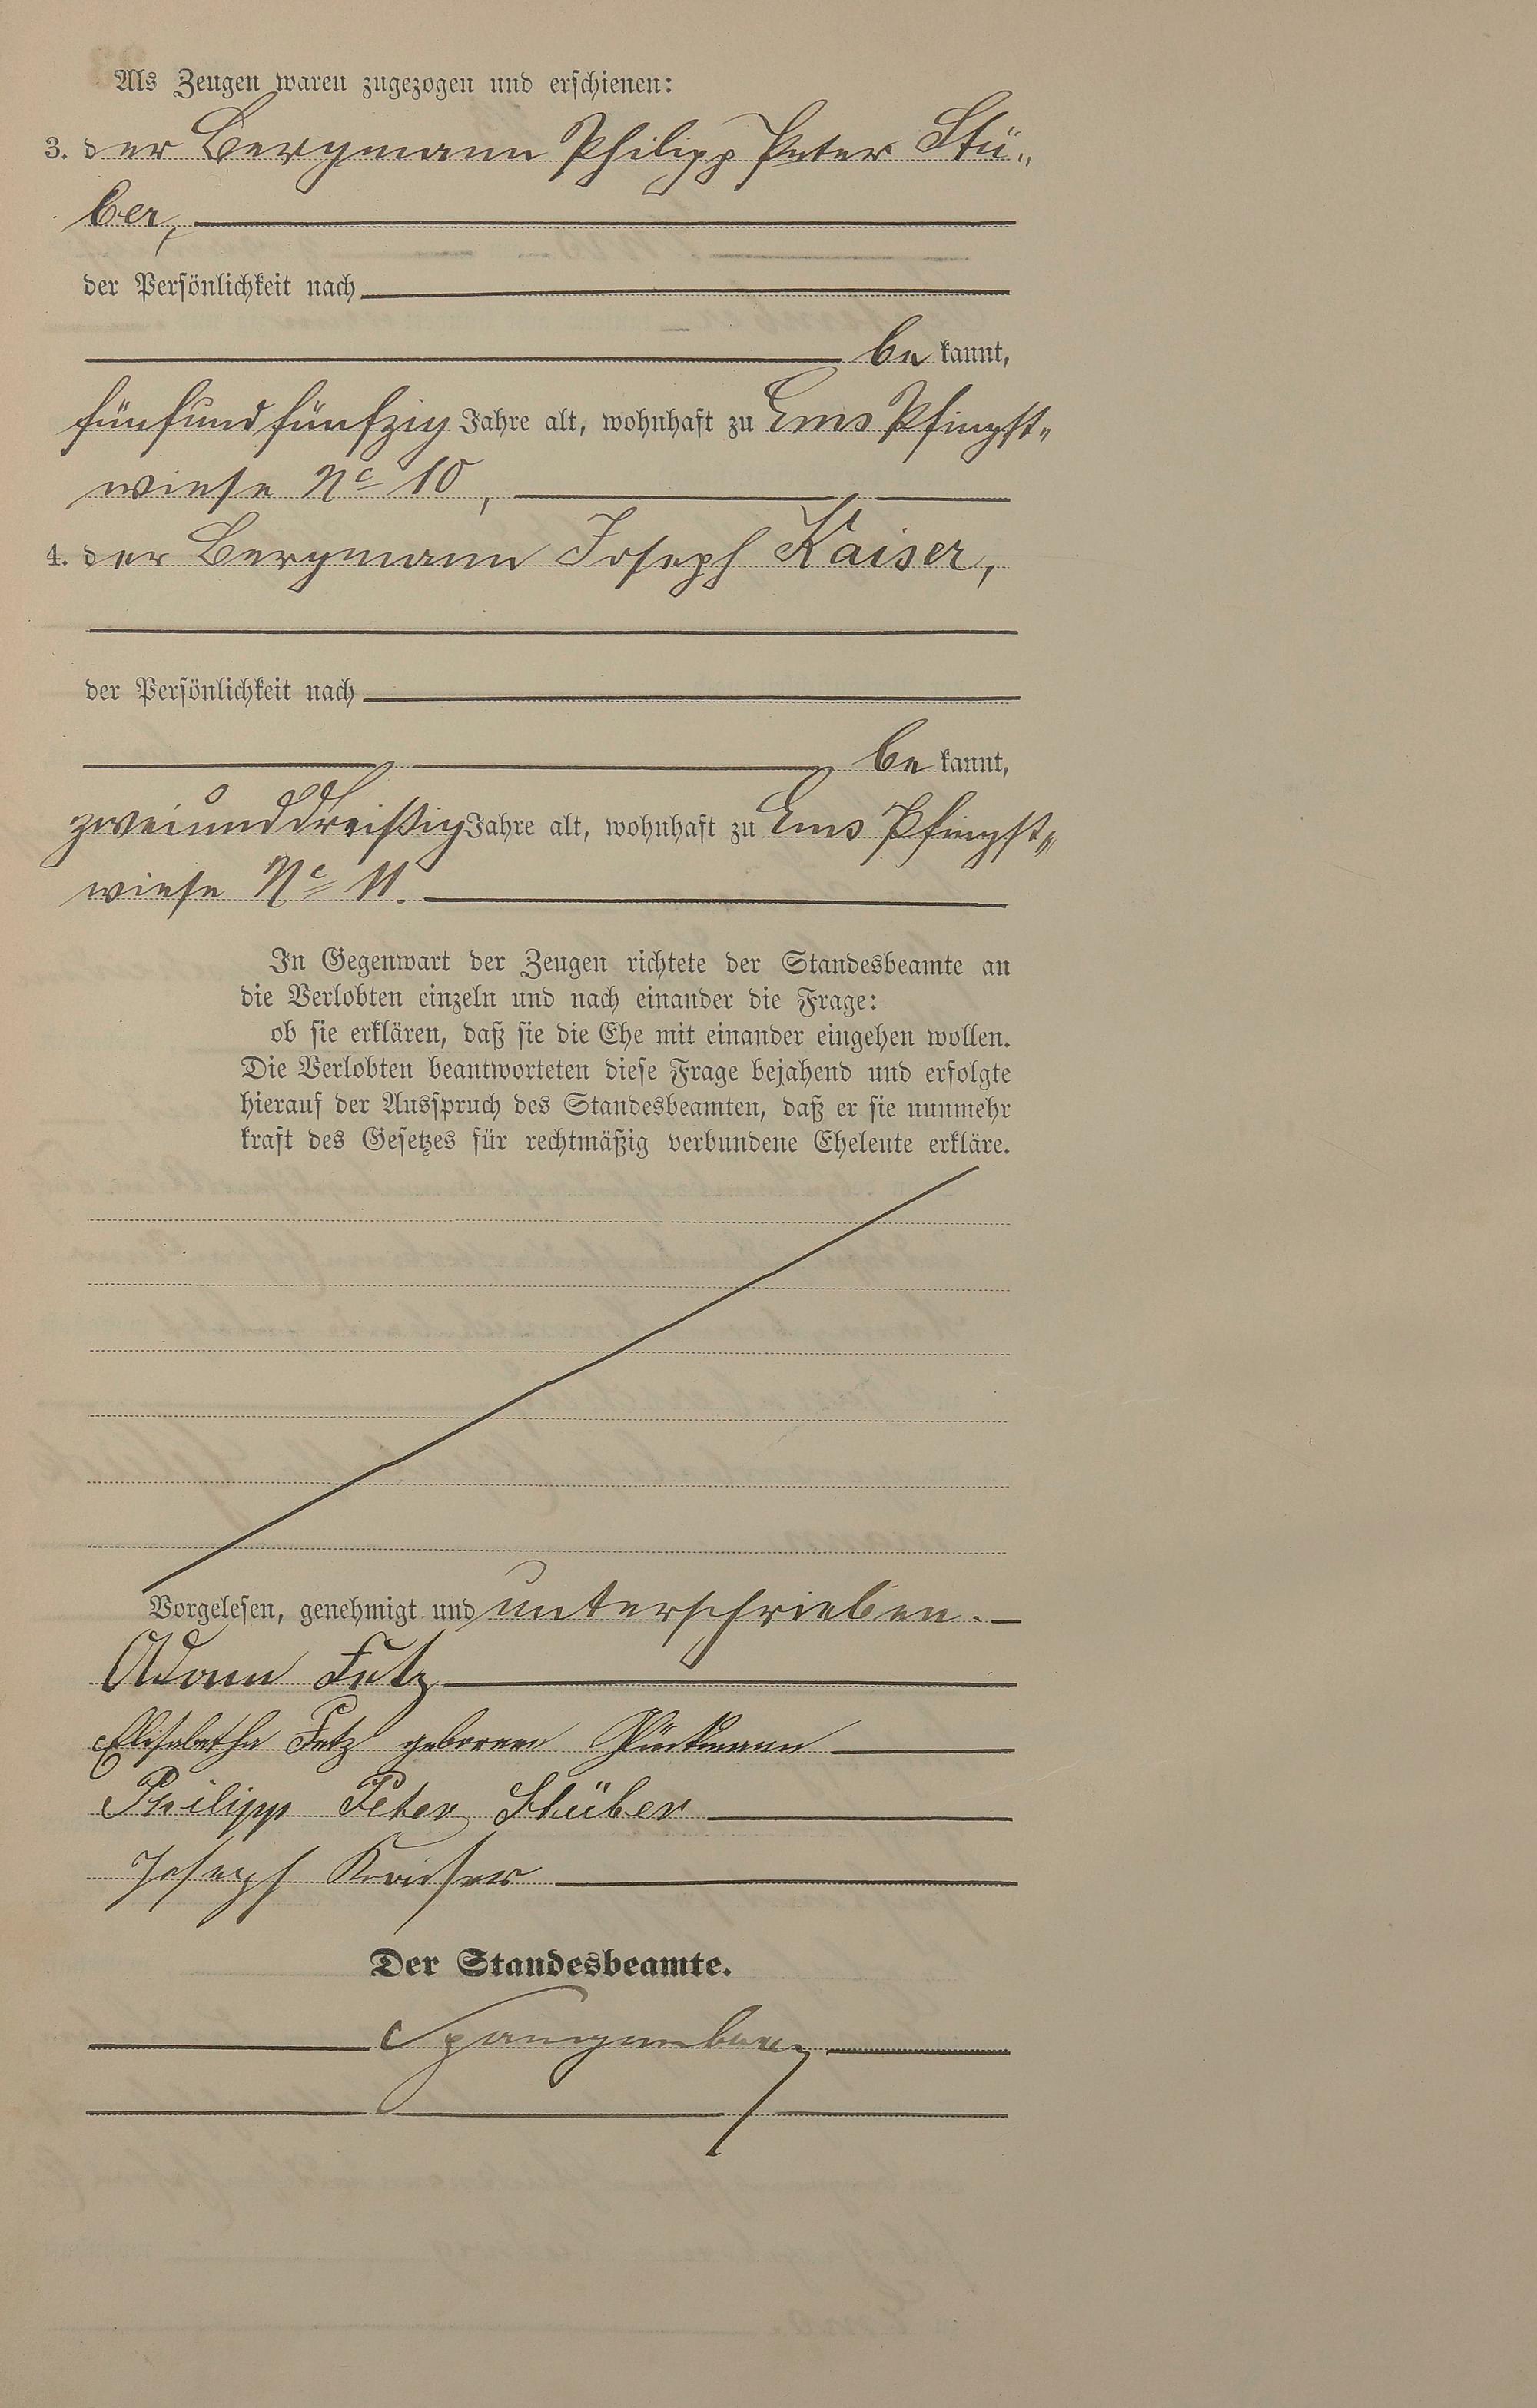 Als Zeugen waren zugezogen und erschienen:
3. der Bergmann Philipp Peter Stü„
ber,
der Persönlichkeit nach
be kannt,
fünfundfünfzig Jahre alt, wohnhaft zu Ems Pfingst„
wiese No 10,
4. der Bergmann Joseph Kaiser,
der Persönlichkeit nach
be kannt,
zweiunddreißig Jahre alt, wohnhaft zu Ems Pfingst„
wiese No 11.
In Gegenwart der Zeugen richtete der Standesbeamte an
die Verlobten einzeln und nach einander die Frage:
ob sie erklären, daß sie die Ehe mit einander eingehen wollen.
Die Verlobten beantworteten diese Frage bejahend und erfolgte
hierauf der Ausspruch des Standesbeamten, daß er sie nunmehr
kraft des Gesetzes für rechtmäßig verbundene Eheleute erkläre.
Vorgelesen, genehmigt und unterschrieben.
Adam Fetz
Elisabetha Fetz geborene
Philipp Peter Stüber
Joseph Kaiser
Der Standesbeamte.
Spangenberg